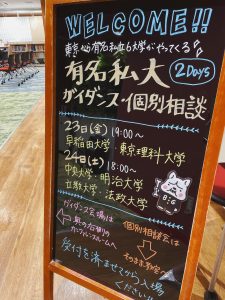 WELCOME!!
東京から有名私立6大学がやってくる
有名私大 2Days
ガイダンス・個別相談
23日(金) 19:00〜
早稲田大学・東京理科大学
24日(土) 18:00〜
中央大学・明治大学
立教大学・法政大学
ガイダンス会場は
個別相談会は
受付を済ませてから入場
ください